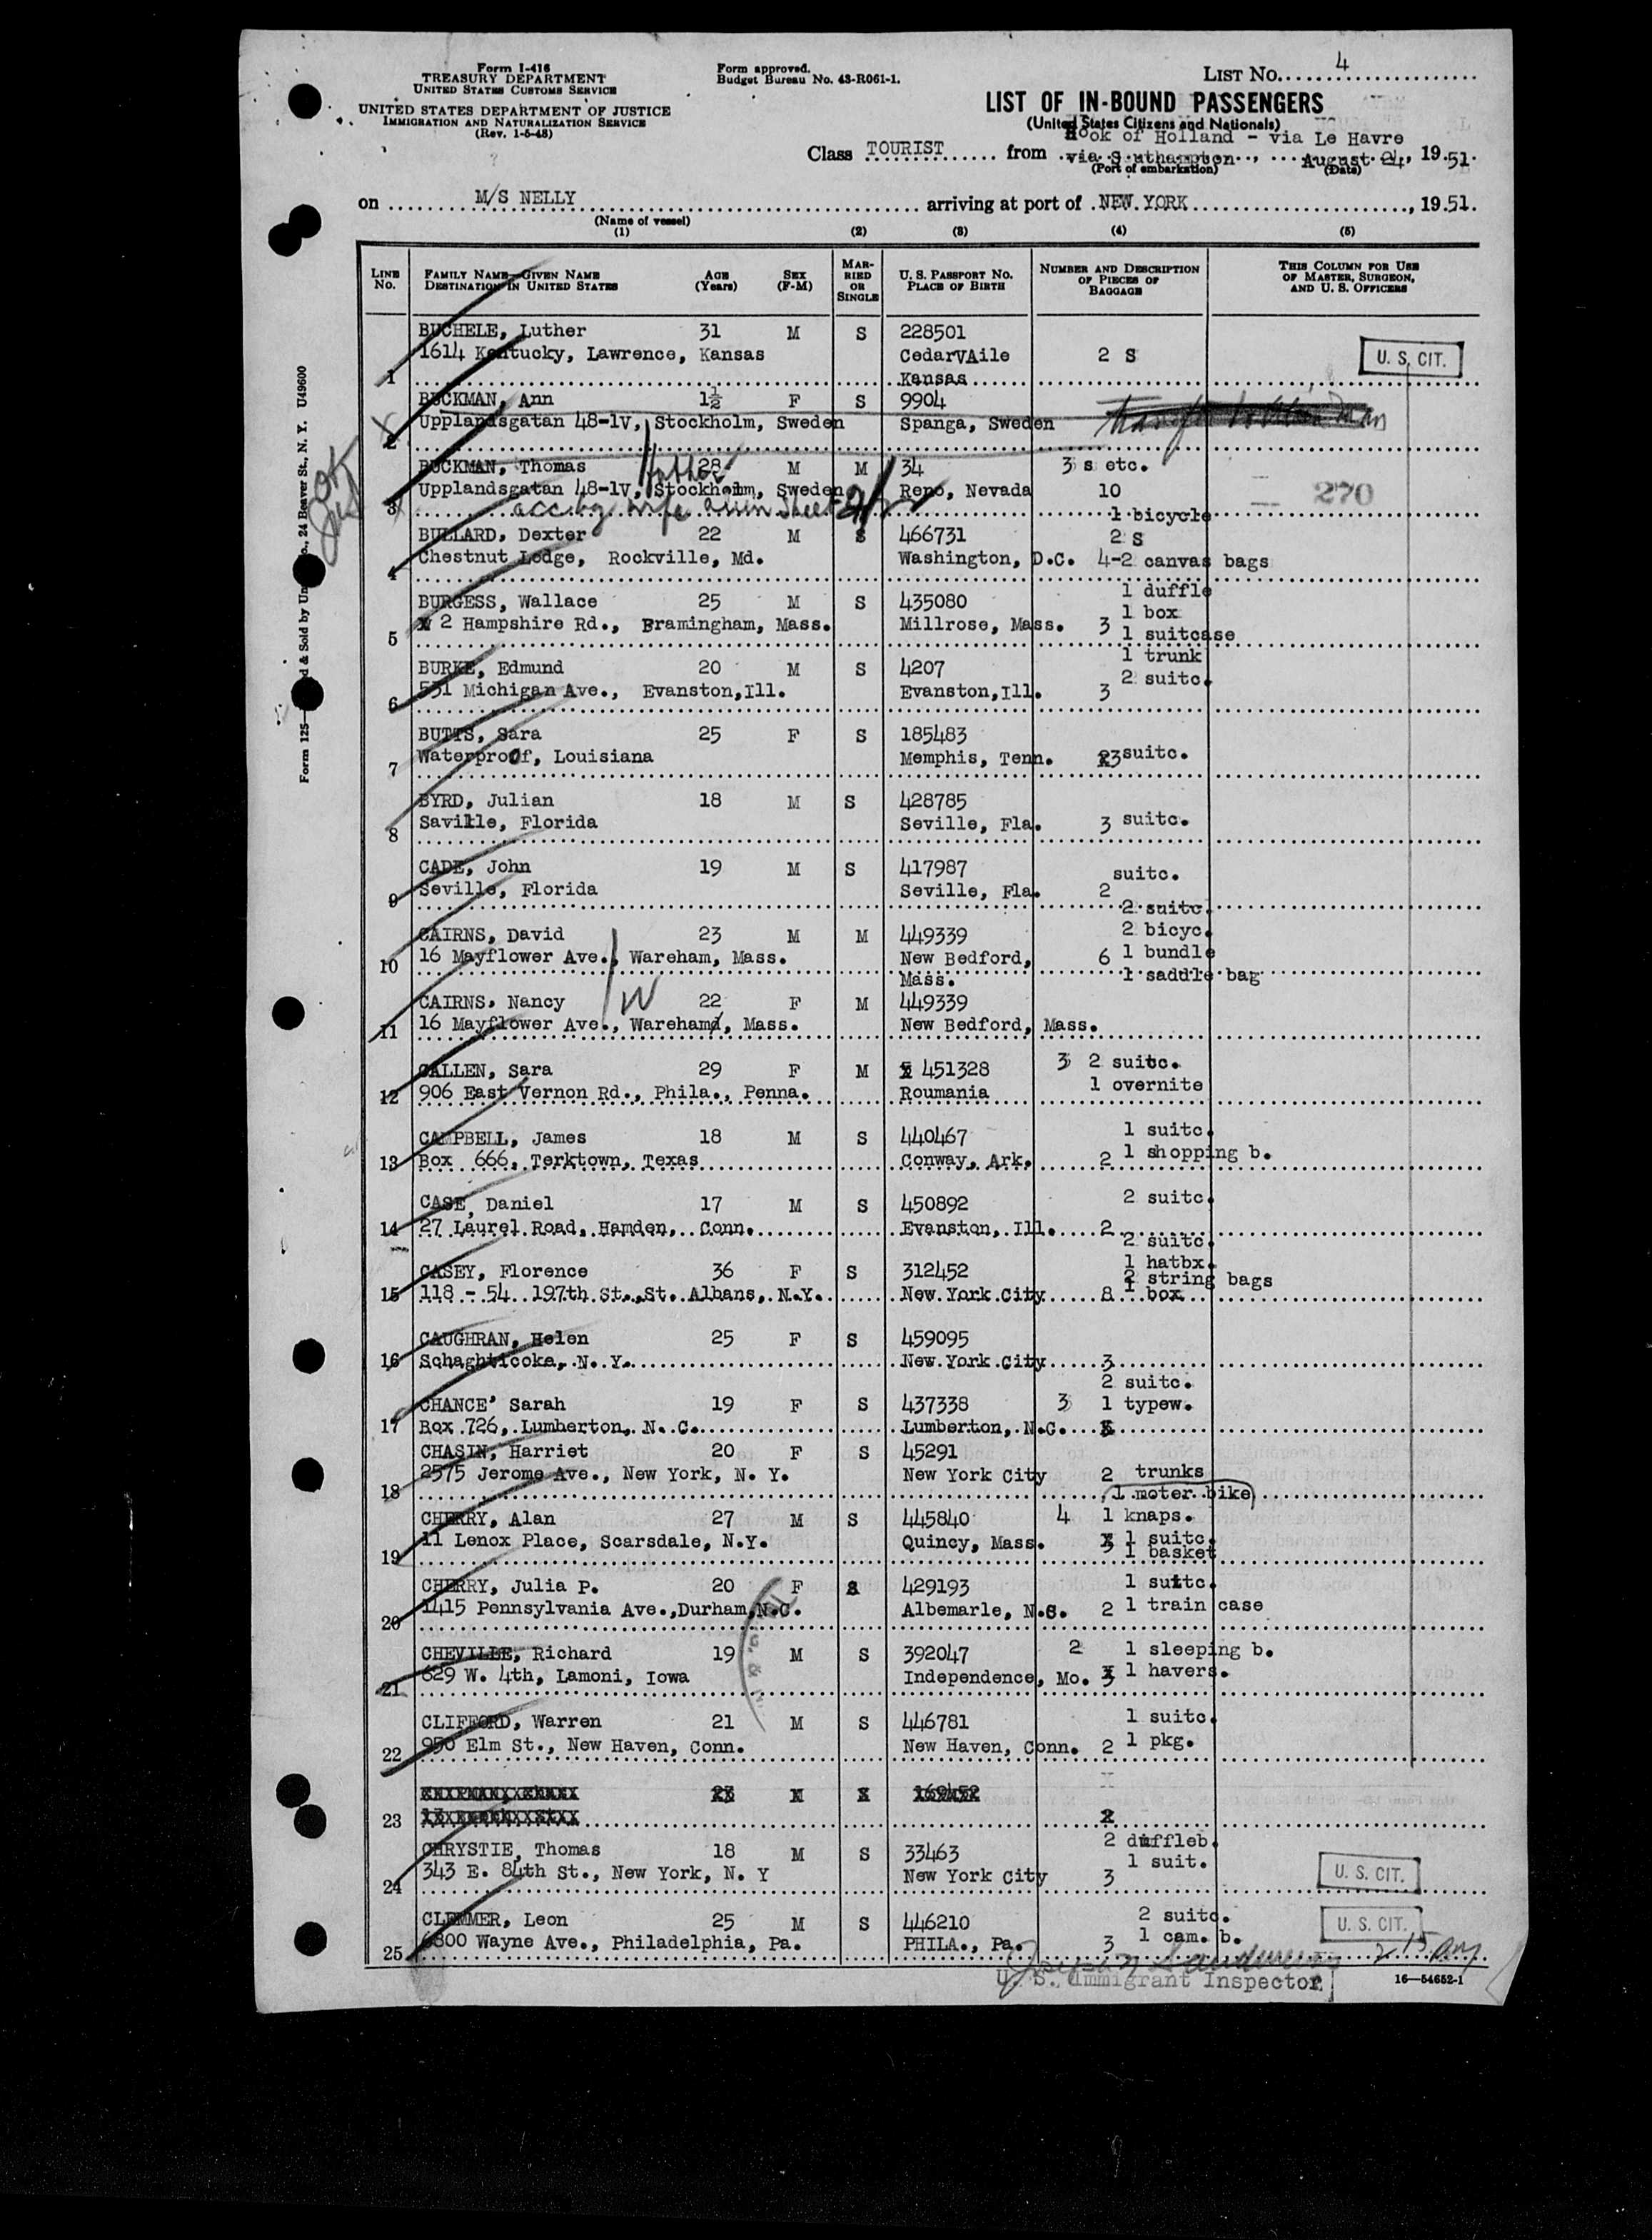 Form I-416
TREASURY DEPARTMENT
UNITED STATES CUSTOMS SERVICE
UNITED STATES DEPARTMENT OF JUSTICE
IMMIGRATION AND NATURALIZATION SERVICE
(Rev. 1-5-48)
Form approved.
Budget Bureau No. 43-R061-1.
LIST NO. 4
LIST OF IN-BOUND PASSENGERS
(United States Citizens and Nationals)
Hook of Holland - via Le Havre
Class TOURIST from via Southampton, August 24, 1951.
(Port of embarkation) (Date)
on M/S NELLY arriving at port of NEW YORK, 1951.
(Name of vessel)
(1) (2) (3) (4) (5)
LINE NO. FAMILY NAME—GIVEN NAME DESTINATION IN UNITED STATES AGE (Years) SEX (F-M) MARRIED OR SINGLE U. S. PASSPORT NO. PLACE OF BIRTH NUMBER AND DESCRIPTION OF PIECES OF BAGGAGE THIS COLUMN FOR USE OF MASTER, SURGEON, AND U. S. OFFICERS
BUCHELE, Luther 31 M S 228501
1614 Kentucky, Lawrence, Kansas CedarVAile 2 S U. S. CIT.
1 Kansas
BUCKMAN, Ann 1½ F S 9904
Upplandsgatan 48-1V, Stockholm, Sweden Spanga, Sweden
2
BUCKMAN, Thomas 28 M M 34 3 s etc.
Upplandsgatan 48-1V, Stockholm, Sweden Reno, Nevada 10 270
3 accbg wife alien sheet 1 bicycle
BULLARD, Dexter 22 M S 466731 2 S
Chestnut Lodge, Rockville, Md. Washington, D.C. 4-2 canvas bags
4
1 duffle
BURGESS, Wallace 25 M S 435080 1 box
2 Hampshire Rd., Framingham, Mass. Millrose, Mass. 3 1 suitcase
5
1 trunk
BURKE, Edmund 20 M S 4207 2 suitc.
531 Michigan Ave., Evanston,Ill. Evanston,Ill. 3
6
BUTTS, Sara 25 F S 185483
Waterproof, Louisiana Memphis, Tenn. 3 suitc.
7
BYRD, Julian 18 M S 428785
Saville, Florida Seville, Fla. 3 suitc.
8
CADE, John 19 M S 417987 suitc.
Seville, Florida Seville, Fla. 2
9
2 suitc.
CAIRNS, David 23 M M 449339 2 bicyc.
16 Mayflower Ave., Wareham, Mass. New Bedford, 6 1 bundle
10 Mass. 1 saddle bag
CAIRNS, Nancy W 22 F M 449339
11 16 Mayflower Ave., Wareham, Mass. New Bedford, Mass.
CALLEN, Sara 29 F M 451328 3 2 suitc.
12 906 East Vernon Rd., Phila., Penna. Roumania 1 overnite
CAMPBELL, James 18 M S 440467 1 suitc.
13 Box 666, Terktown, Texas Conway, Ark. 2 1 shopping b.
CASE, Daniel 17 M S 450892 2 suitc.
14 27 Laurel Road, Hamden, Conn. Evanston, Ill. 2
2 suitc.
1 hatbx.
CASEY, Florence 36 F S 312452 2 string bags
15 118 - 54 197th St., St. Albans, N.Y. New York City 8 1 box
CAUGHRAN, Helen 25 F S 459095
16 Schaghticoka, N. Y. New York City 3
2 suitc.
CHANCE' Sarah 19 F S 437338 3 1 typew.
17 Box 726, Lumberton, N. C. Lumberton, N.C.
CHASIN, Harriet 20 F S 45291
2575 Jerome Ave., New York, N. Y. New York City 2 trunks
18 1 moter bike
CHERRY, Alan 27 M S 445840 4 1 knaps.
11 Lenox Place, Scarsdale, N.Y. Quincy, Mass. 1 suitc.
19 1 basket
CHERRY, Julia P. 20 F S 429193 1 suitc.
1415 Pennsylvania Ave.,Durham,N.C. Albemarle, N.C. 2 1 train case
20
CHEVILLE, Richard 19 M S 392047 2 1 sleeping b.
629 W. 4th, Lamoni, Iowa Independence, Mo. 1 havers.
21
CLIFFORD, Warren 21 M S 446781 1 suitc.
950 Elm St., New Haven, Conn. New Haven, Conn. 2 1 pkg.
22
23
CHRYSTIE, Thomas 18 M S 33463 2 duffleb.
343 E. 84th St., New York, N. Y New York City 3 1 suit. U. S. CIT.
24
CLEMMER, Leon 25 M S 446210 2 suitc. U. S. CIT.
6800 Wayne Ave., Philadelphia, Pa. PHILA., Pa. 3 1 cam. b.
25
U. S. Immigrant Inspector
16—54652-1
Form 125— & Sold by 24 Beaver St., N. Y. U49600